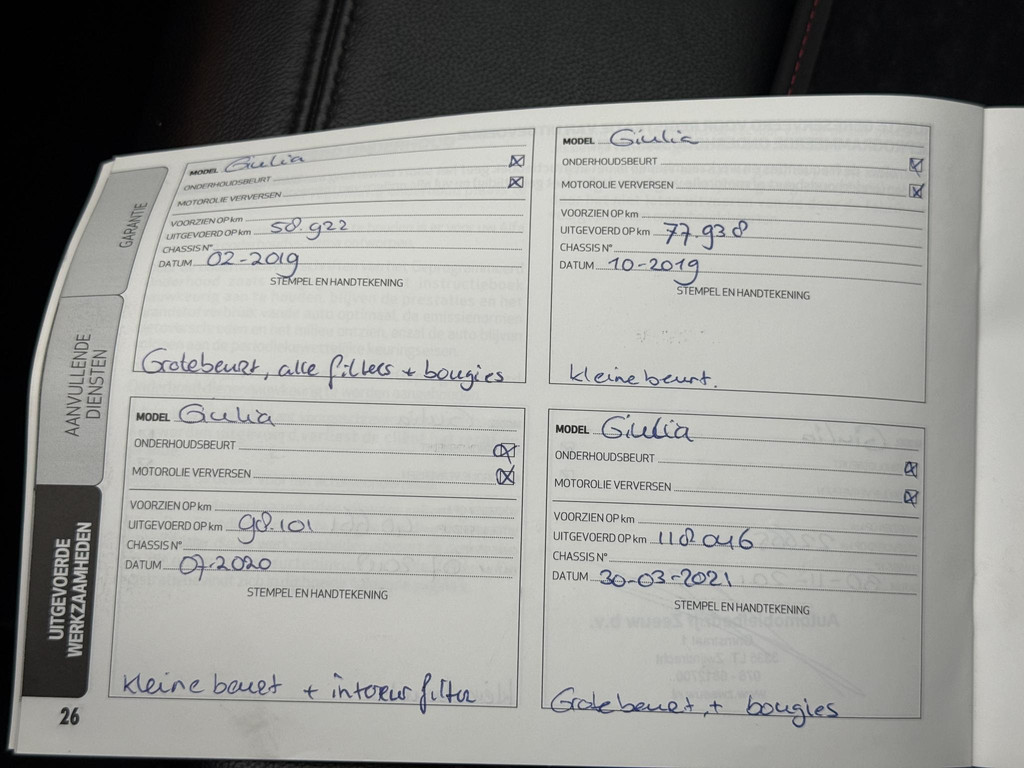 GARANTIE
AANVULLENDE
DIENSTEN
UITGEVOERDE
WERKZAAMHEDEN
MODEL Giulia
ONDERHOUDSBEURT
MOTOROLIE VERVERSEN
VOORZIEN OP km
UITGEVOERD OP km 58.922
CHASSIS N°
DATUM 02-2019
STEMPEL EN HANDTEKENING
Grotebeurt, alle filters + bougies
MODEL Giulia
ONDERHOUDSBEURT
MOTOROLIE VERVERSEN
VOORZIEN OP km
UITGEVOERD OP km 77.938
CHASSIS N°
DATUM 10-2019
STEMPEL EN HANDTEKENING
kleine beurt.
MODEL Giulia
ONDERHOUDSBEURT
MOTOROLIE VERVERSEN
VOORZIEN OP km
UITGEVOERD OP km 98.101
CHASSIS N°
DATUM 07-2020
STEMPEL EN HANDTEKENING
kleine beurt + interieur filter
MODEL Giulia
ONDERHOUDSBEURT
MOTOROLIE VERVERSEN
VOORZIEN OP km
UITGEVOERD OP km 118.046
CHASSIS N°
DATUM 30-03-2021
STEMPEL EN HANDTEKENING
Grote beurt, + bougies
26